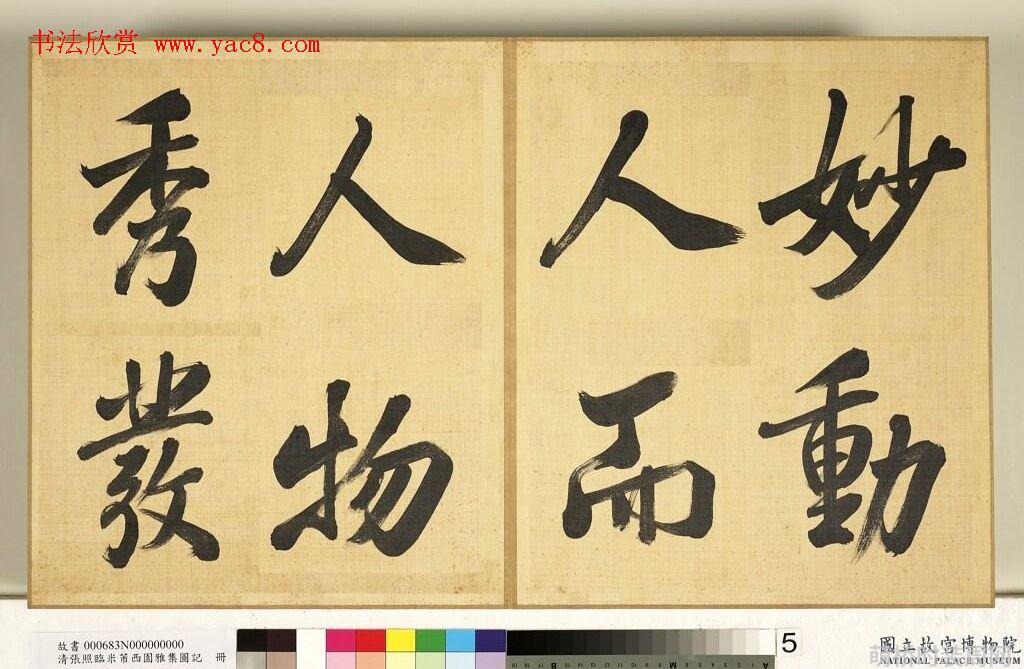 书法欣赏 www.yac8.com
妙動
人而
人物
秀發
故書 000683N000000000
清張照臨米芾西園雅集圖記 冊
5
國立故宮博物院
NATIONAL PALACE MUSEUM